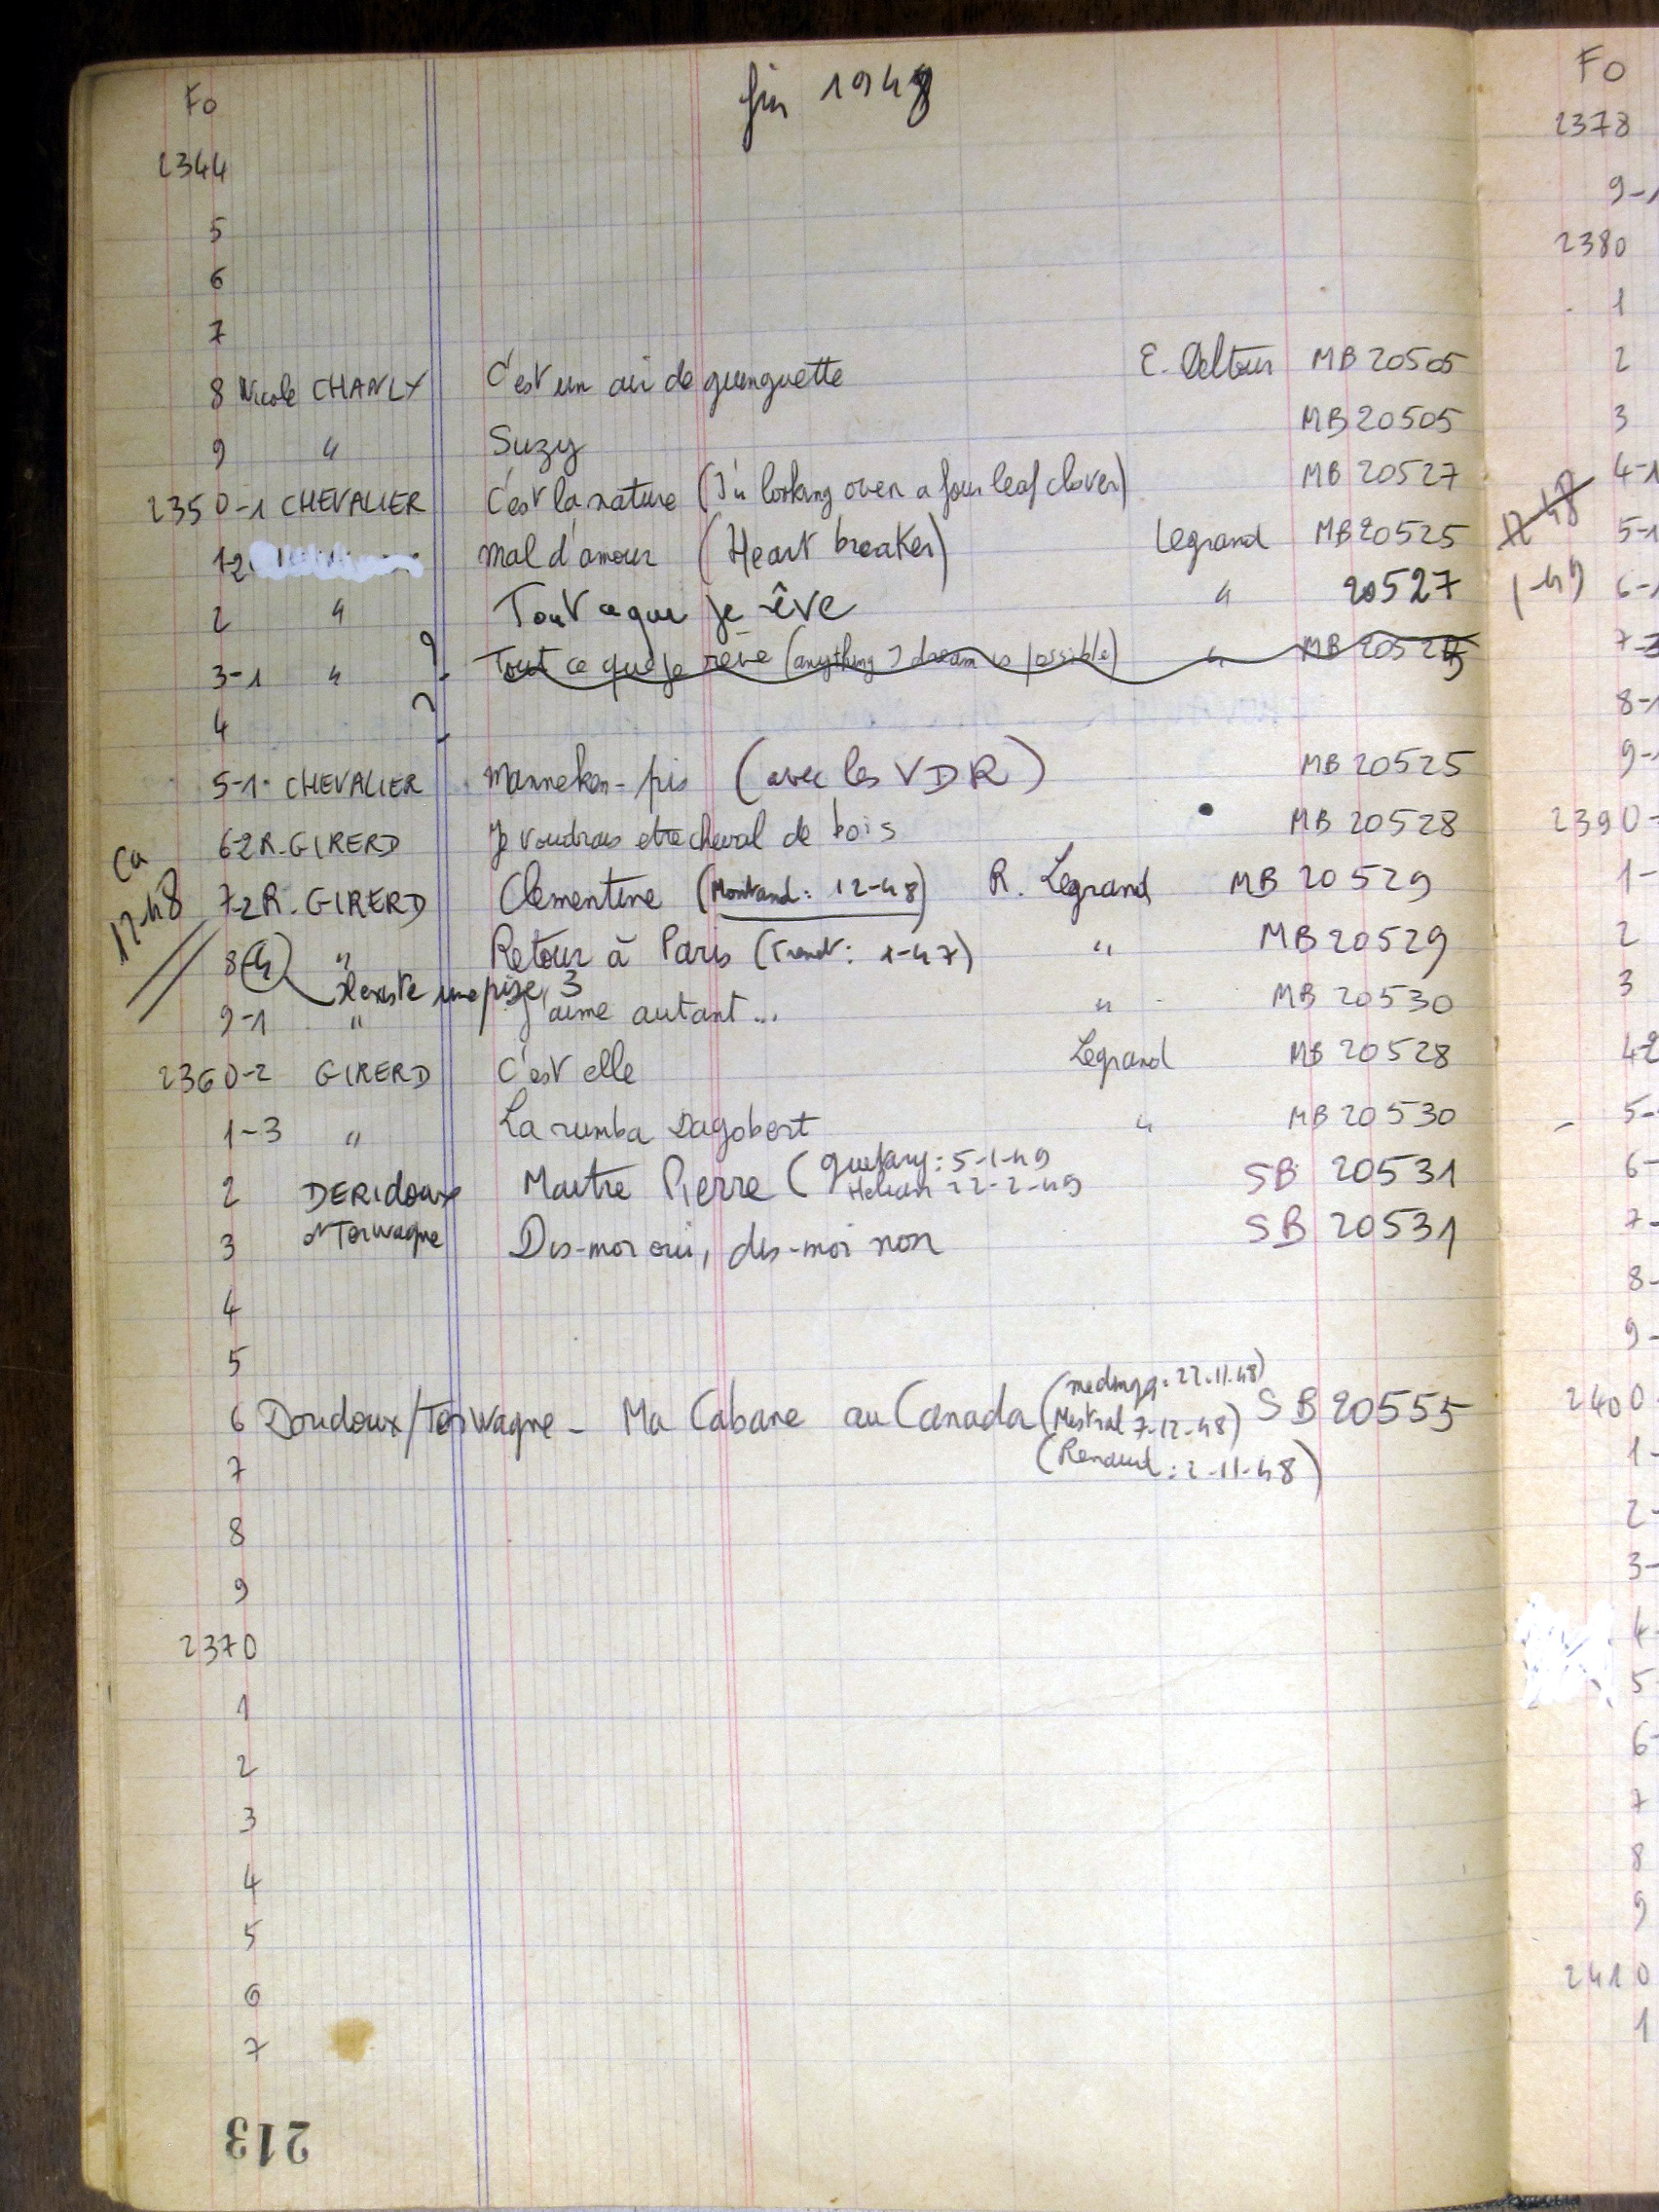 Fo
fin 1948
2344
5
6
7
8 Nicole CHANLY C'est un air de guinguette E. Deltour MB 20505
9 " Suzy MB 20505
2350-1 CHEVALIER C'est la nature (I'm looking over a four leaf clover) MB 20527
1-2 Mal d'amour (Heart breaker) Legrand MB 20525
2 " Tout ce que je rêve " 20527
3-1 " ? Tout ce que je rêve (anything I dream is possible) " MB 20525
4 ?
5-1 CHEVALIER Manneken-pis (avec les VDR) MB 20525
6-2 R. GIRERD Je voudrais etre cheval de bois MB 20528
ca 12-48
7-2 R. GIRERD Clementine (Montand: 12-48) R. Legrand MB 20529
8 (4) " Retour à Paris (Trenet: 1-47) " MB 20529
Il existe une prise 3
9-1 " J'aime autant... " MB 20530
2360-2 GIRERD C'est elle Legrand MB 20528
1-3 " La rumba Dagobert " MB 20530
2 DERIdoux Maitre Pierre (Guetary: 5-1-49 SB 20531
Helian 22-2-49
3 et Terwagne Dis-moi oui, dis-moi non SB 20531
4
5
6 Doudoux/Terwagne - Ma Cabane au Canada (22-11-48) SB 20555
(Mestral 7-12-48)
7 (Renaud: 2-11-48)
8
9
2370
1
2
3
4
5
6
7
213
Fo
2378
9-1
2380
1
2
3
4-1
12-48 5-1
1-49 6-1
7-3
8-1
9-1
2390-
1-
2
3
4-2
5-
6-
7-
8-
9-
2400-
1-
2-
3-
4-
5-
6-
7
8
9
2410
1